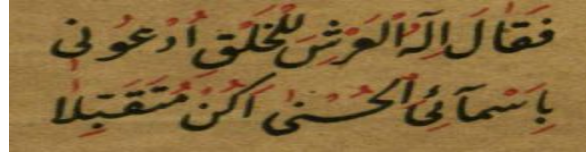 فَقَالَ اِلَهُ الْعَرْشِ لِلْخَلْقِ اُدْعُونِى
بِاَسْمَآئِىَ الْحُسْنٰى اَكُنْ مُتَقَبِّلَا